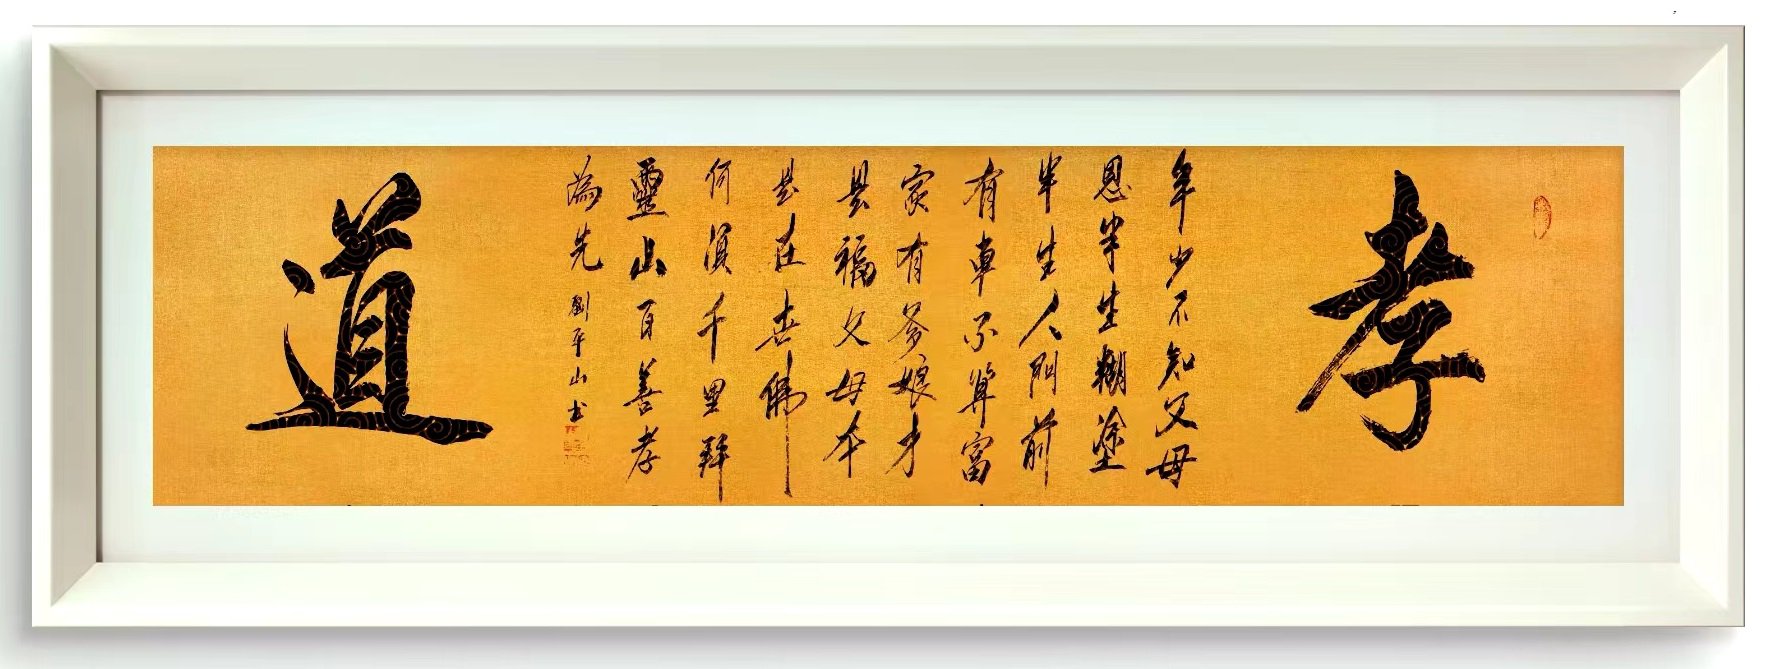 孝
年少不知父母
恩半生糊塗
半生人門前
有車不算富
家有爹娘才
是福父母本
是在世佛
何須千里拜
靈山百善孝
為先
劉平山书
道